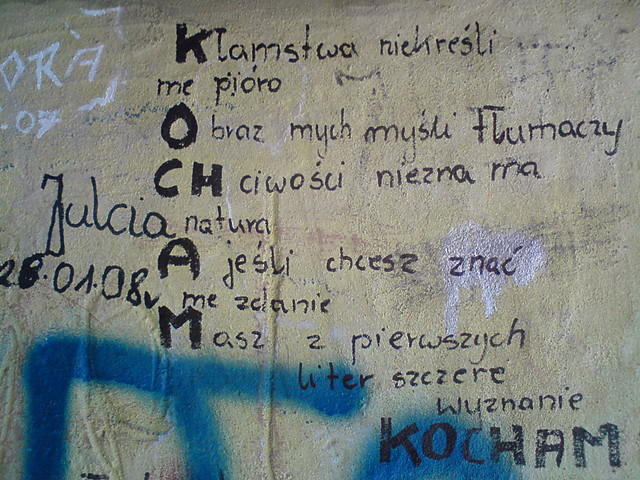 ORA
.07
Kłamstwa niekreśli
me pióro
Obraz mych myśli tłumaczy
CHciwości niezna ma
natura
Julcia
28.01.08r
A jeśli chcesz znać
me zdanie
Masz z pierwszych
liter szczere
wyznanie
KOCHAM